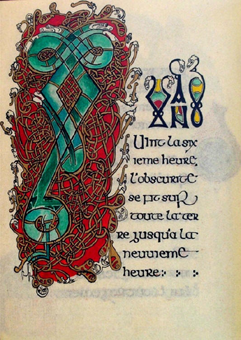 vint la six
ieme heure,
l'obscurité
se fit sur
toute la ter
re jusqu'a la
neuvieme
heure